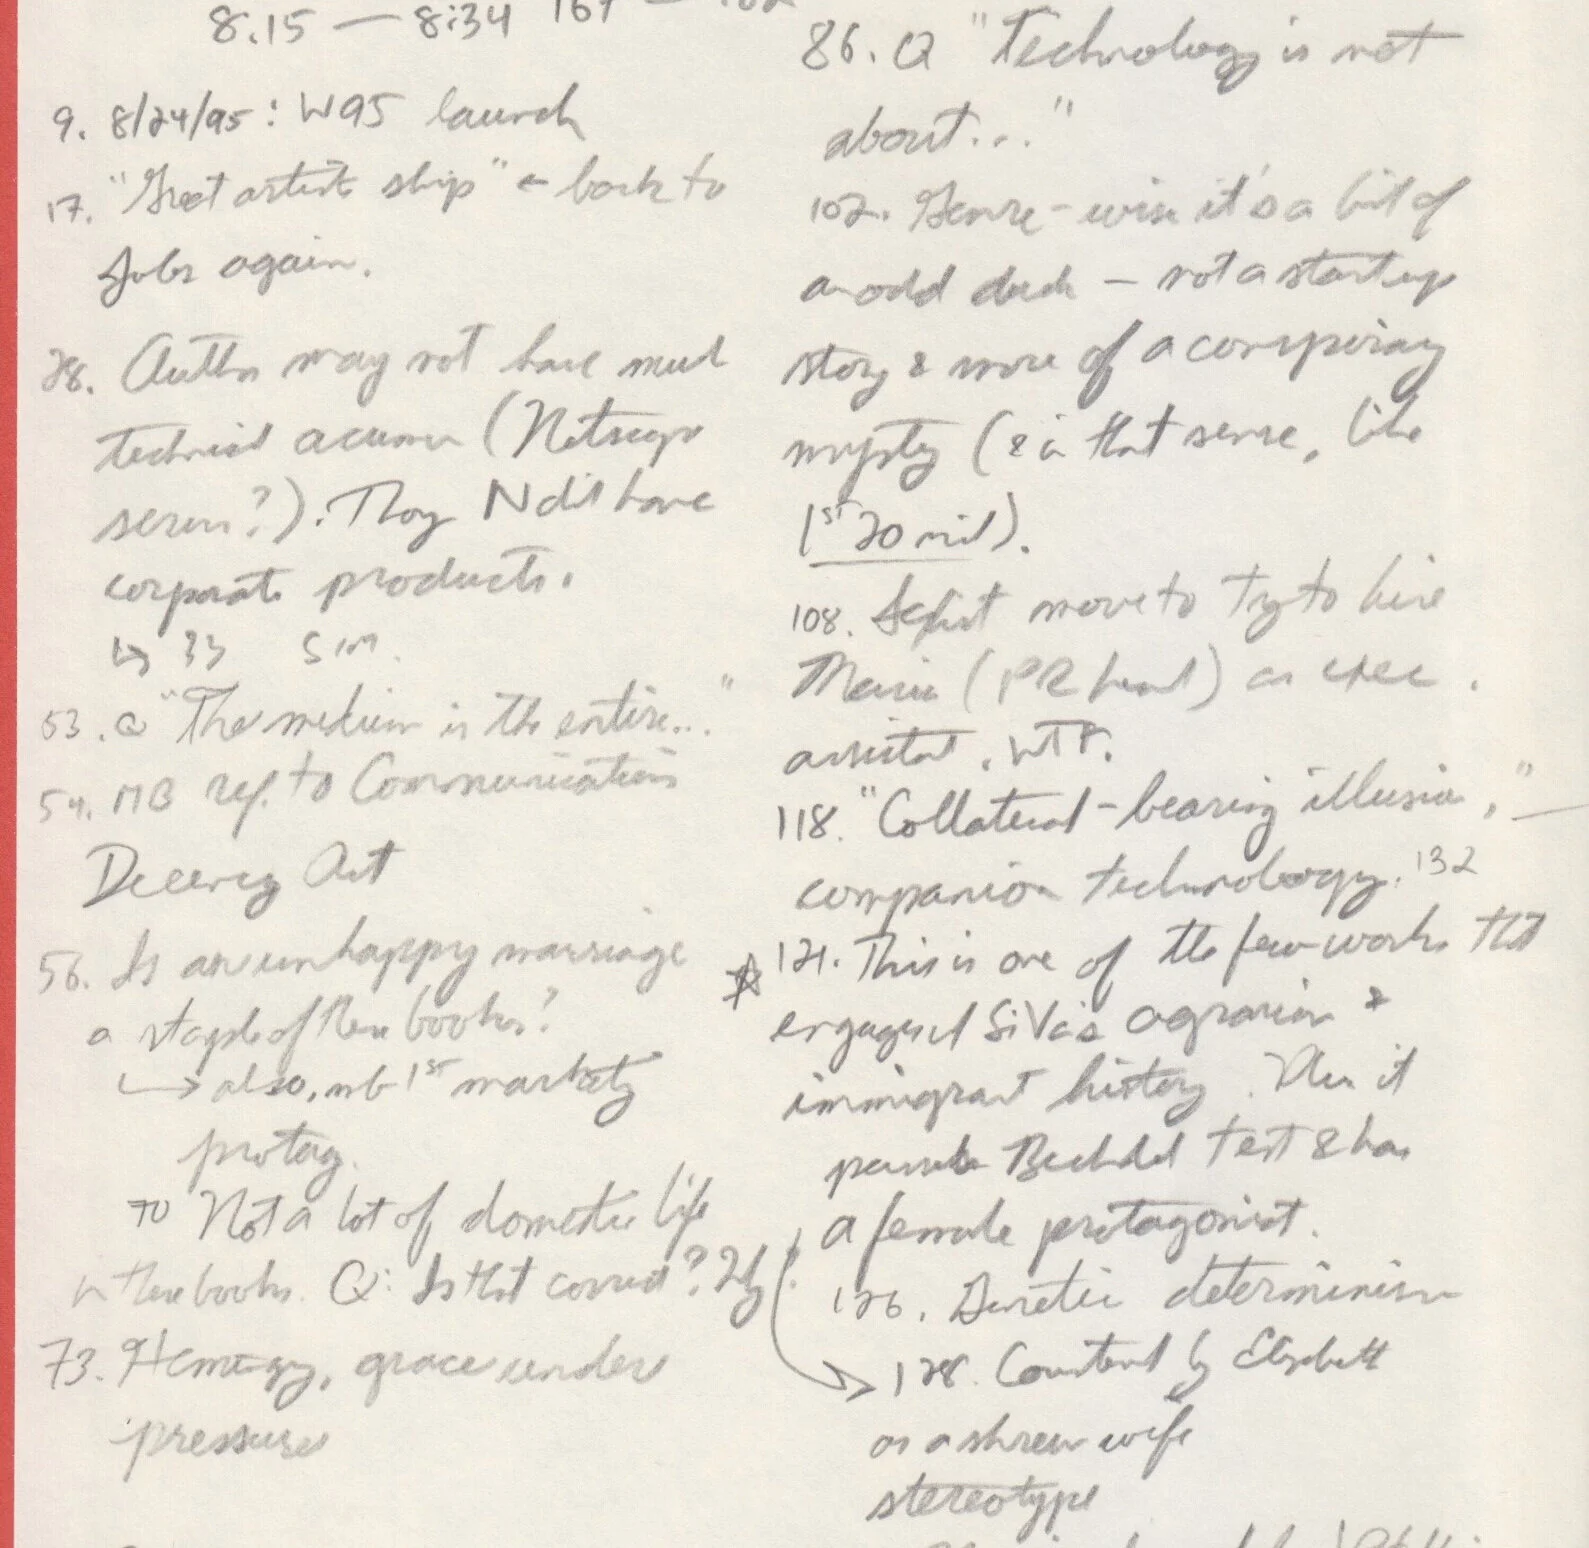 8.15 — 8:34 167 —
9. 8/24/95: W95 launch
17. "Great artists ship" ← back to
Jobs again.
28. Author may not have much
technical acumen (Netscape
server?). Thoy N did have
corporate products.
↳ 33 SIM.
53. Q "The medium is the entire..."
54. MB ref. to Communications
Decency Act
56. Is an unhappy marriage
a staple of these books?
↳ also, nb 1st marketing
protag.
70 Not a lot of domestic life
in these books. Q: Is that correct? If
73. Hemingway, grace under
pressure
86. Q "Technology is not
about..."
102. Genre-wise it's a bit of
an odd duck — not a startup
story & more of a conspiracy
mystery (& in that sense, like
1st 20 mil).
108. Sexist move to try to hire
(PR head) as exec.
assistant. WTF.
118. "Collateral-bearing illusion," —
companion technology. 132
☆ 121. This is one of the few works that
engages w/ SiVa's agrarian &
immigrant history. Plus it
passes Bechdel test & has
a female protagonist.
126. Genetic determinism
→ 128. Countered by Elizabeth
as a shrew wife
stereotype